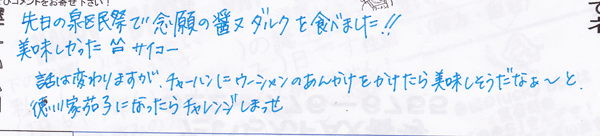 びコメントをお寄せ下さい!
先日の泉区民祭で念願の醤ヌダルクを食べました!!
美味しかった サイコー
話は変わりますが、チャーハンにウーシメンのあんかけをかけたら美味しそうだなぁ〜と、
徳川家茄子になったらチャレンジしまっせ